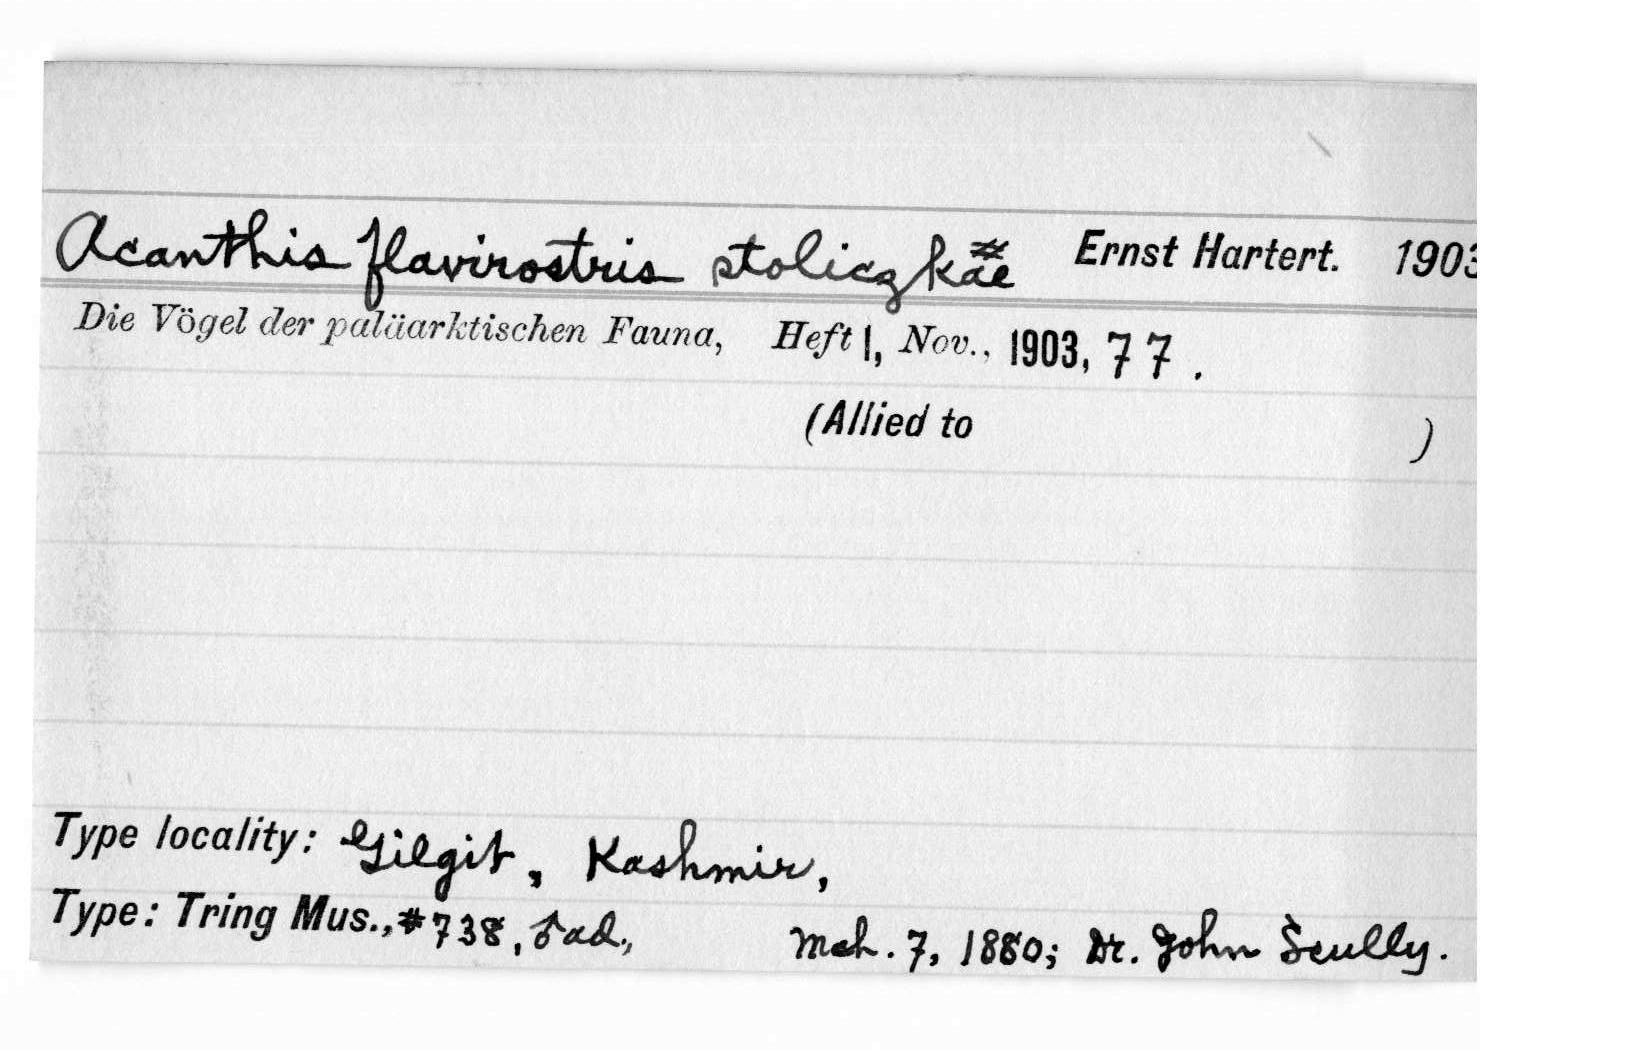 Acanthis flavirostris stoliczkae # Ernst Hartert. 1903
Die Vögel der paläarktischen Fauna, Heft 1, Nov., 1903, 77.
(Allied to )
Type locality: Gilgit, Kashmir,
Type: Tring Mus., #738, ♂ ad., Mch. 7, 1880; Dr. John Scully.